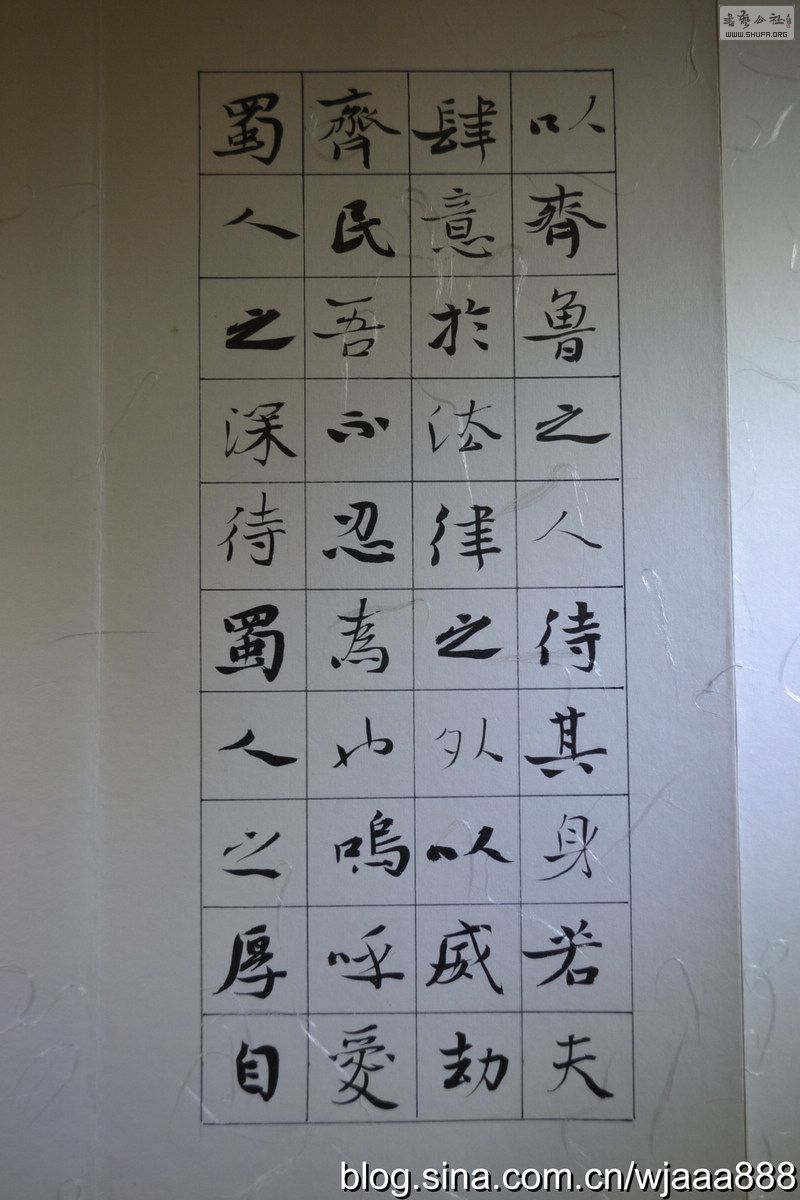 以齊魯之人待其身若夫
肆意於法律之外以威劫
齊民吾不忍為也嗚呼愛
蜀人之深待蜀人之厚自
書藝公社
WWW.SHUFA.ORG
blog.sina.com.cn/wjaaa888